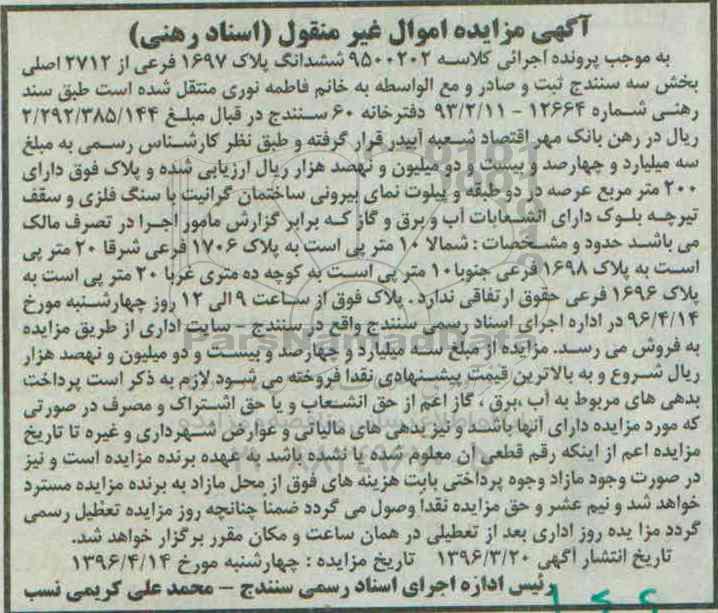 آگهی مزایده اموال غیر منقول (اسناد رهنی)
به موجب پرونده اجرائی کلاسه ۹۵۰۰۲۰۲ ششدانگ پلاک ۱۶۹۷ فرعی از ۲۷۱۲ اصلی
بخش سه سنندج ثبت و صادر و مع الواسطه به خانم فاطمه نوری منتقل شده است طبق سند
رهنی شماره ۱۲۶۶۴ - ۹۳/۲/۱۱ دفترخانه ۶۰ سنندج در قبال مبلغ ۲/۲۹۲/۳۸۵/۱۴۴
ریال در رهن بانک مهر اقتصاد شعبه آبیدر قرار گرفته و طبق نظر کارشناس رسمی به مبلغ
سه میلیارد و چهارصد و بیست و دو میلیون و نهصد هزار ریال ارزیابی شده و پلاک فوق دارای
۲۰۰ متر مربع عرصه در دو طبقه و پیلوت نمای بیرونی ساختمان گرانیت با سنگ فلزی و سقف
تیرچه بلوک دارای انشعابات آب و برق و گاز که برابر گزارش مامور اجرا در تصرف مالک
می باشد حدود و مشخصات : شمالا ۱۰ متر پی است به پلاک ۱۷۰۶ فرعی شرقا ۲۰ متر پی
است به پلاک ۱۶۹۸ فرعی جنوبا ۱۰ متر پی است به کوچه ده متری غربا ۲۰ متر پی است به
پلاک ۱۶۹۶ فرعی حقوق ارتفاقی ندارد . پلاک فوق از ساعت ۹ الی ۱۲ روز چهارشنبه مورخ
۹۶/۴/۱۴ در اداره اجرای اسناد رسمی سنندج واقع در سنندج - سایت اداری از طریق مزایده
به فروش می رسد. مزایده از مبلغ سه میلیارد و چهارصد و بیست و دو میلیون و نهصد هزار
ریال شروع و به بالاترین قیمت پیشنهادی نقدا فروخته می شود لازم به ذکر است پرداخت
بدهی های مربوط به آب ،برق ، گاز اعم از حق انشعاب و یا حق اشتراک و مصرف در صورتی
که مورد مزایده دارای آنها باشد و نیز بدهی های مالیاتی و عوارض شهرداری و غیره تا تاریخ
مزایده اعم از اینکه رقم قطعی آن معلوم شده یا نشده باشد به عهده برنده مزایده است و نیز
در صورت وجود مازاد وجوه پرداختی بابت هزینه های فوق از محل مازاد به برنده مزایده مسترد
خواهد شد و نیم عشر و حق مزایده نقدا وصول می گردد ضمناً چنانچه روز مزایده تعطیل رسمی
گردد مزا یده روز اداری بعد از تعطیلی در همان ساعت و مکان مقرر برگزار خواهد شد.
تاریخ انتشار آگهی ۱۳۹۶/۳/۲۰ تاریخ مزایده : چهارشنبه مورخ ۱۳۹۶/۴/۱۴
رئیس اداره اجرای اسناد رسمی سنندج - محمد علی کریمی نسب